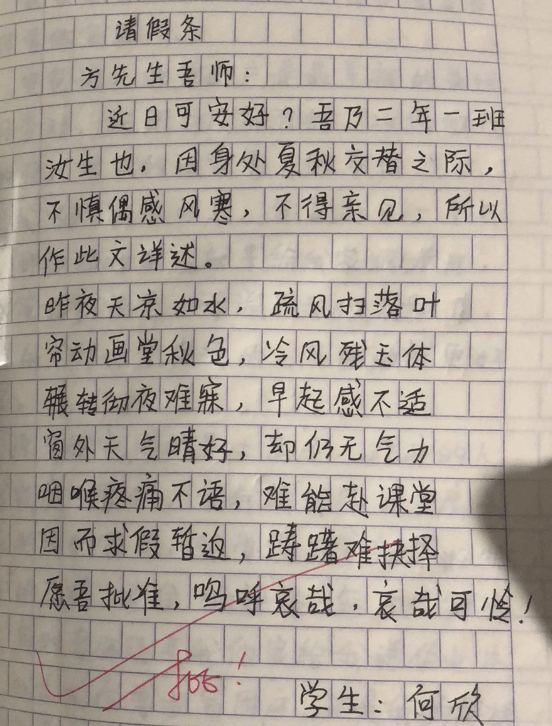 请假条
方先生吾师：
近日可安好？吾乃二年一班
汝生也，因身处夏秋交替之际，
不慎偶感风寒，不得亲见，所以
作此文详述。
昨夜天凉如水，疏风扫落叶
帘动画堂秋色，冷风残玉体
辗转彻夜难寐，早起感不适
窗外天气晴好，却仍无气力
咽喉疼痛不语，难能赴课堂
因而求假暂返，踌躇难抉择
愿吾批准，呜呼哀哉，哀哉可怜！
批！
学生：何欣